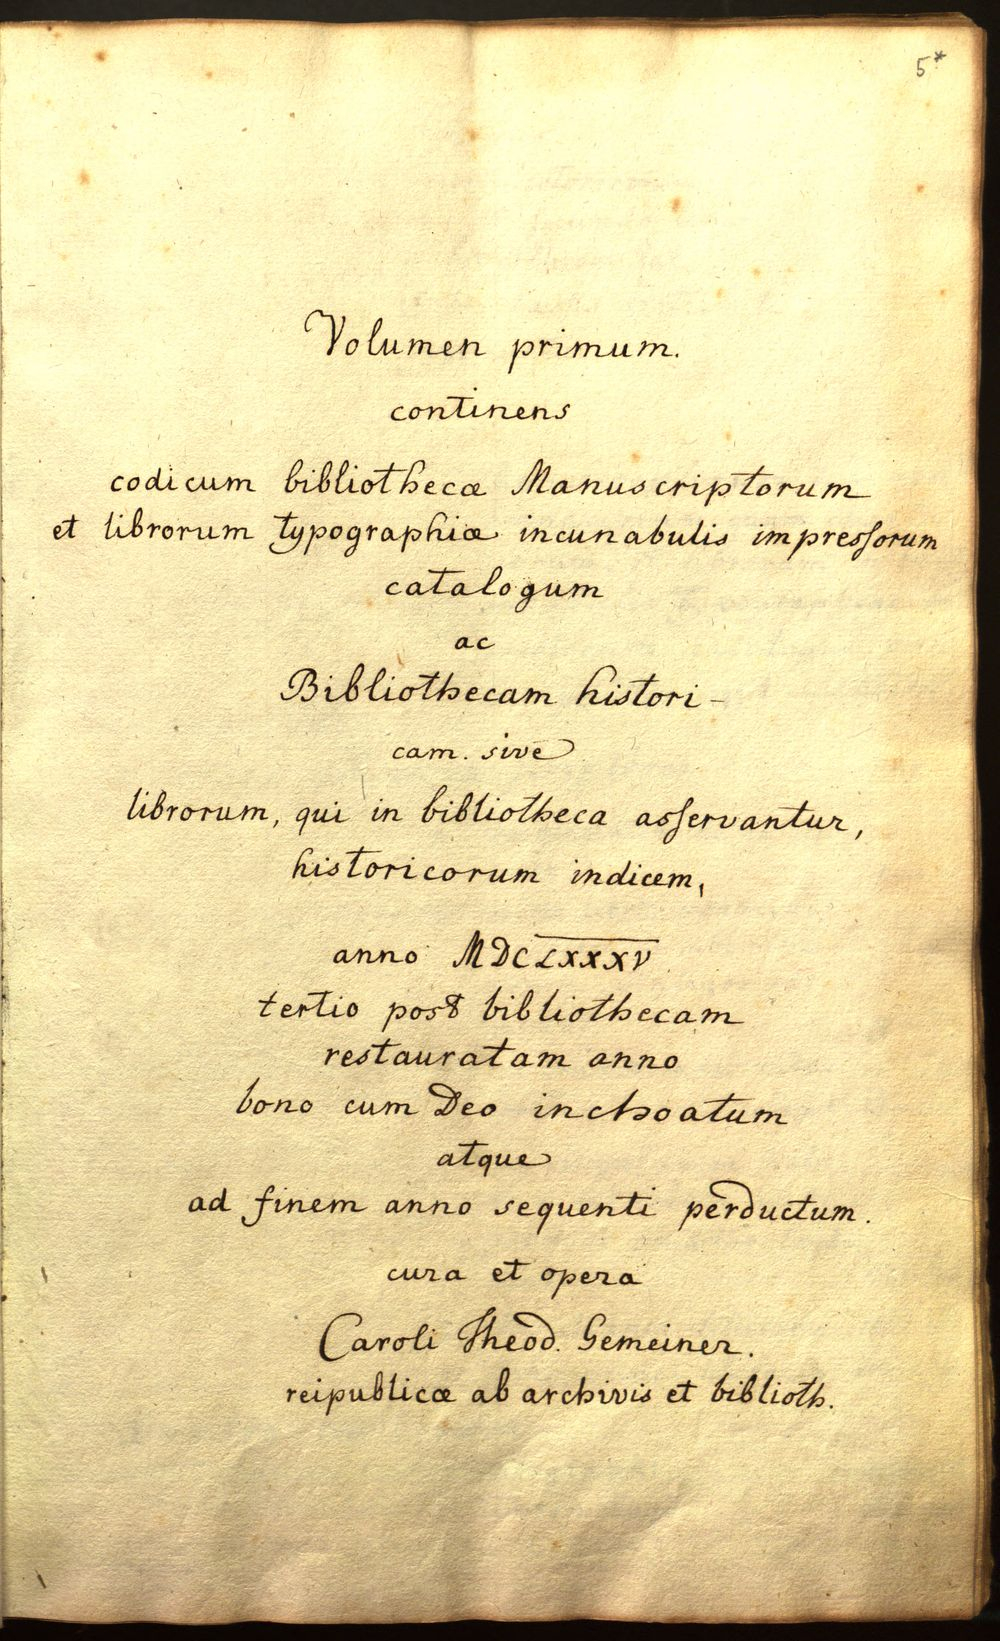 5*
Volumen primum.
continens
codicum bibliothecæ Manuscriptorum
et librorum typographiæ incunabulis impressorum
catalogum
ac
Bibliothecam histori-
cam. sive
librorum, qui in bibliotheca asservantur,
historicorum indicem,
anno MDCLXXXV
tertio post bibliothecam
restauratam anno
bono cum Deo inchoatum
atque
ad finem anno sequenti perductum.
cura et opera
Caroli Theod. Gemeiner.
reipublicæ ab archivis et biblioth.